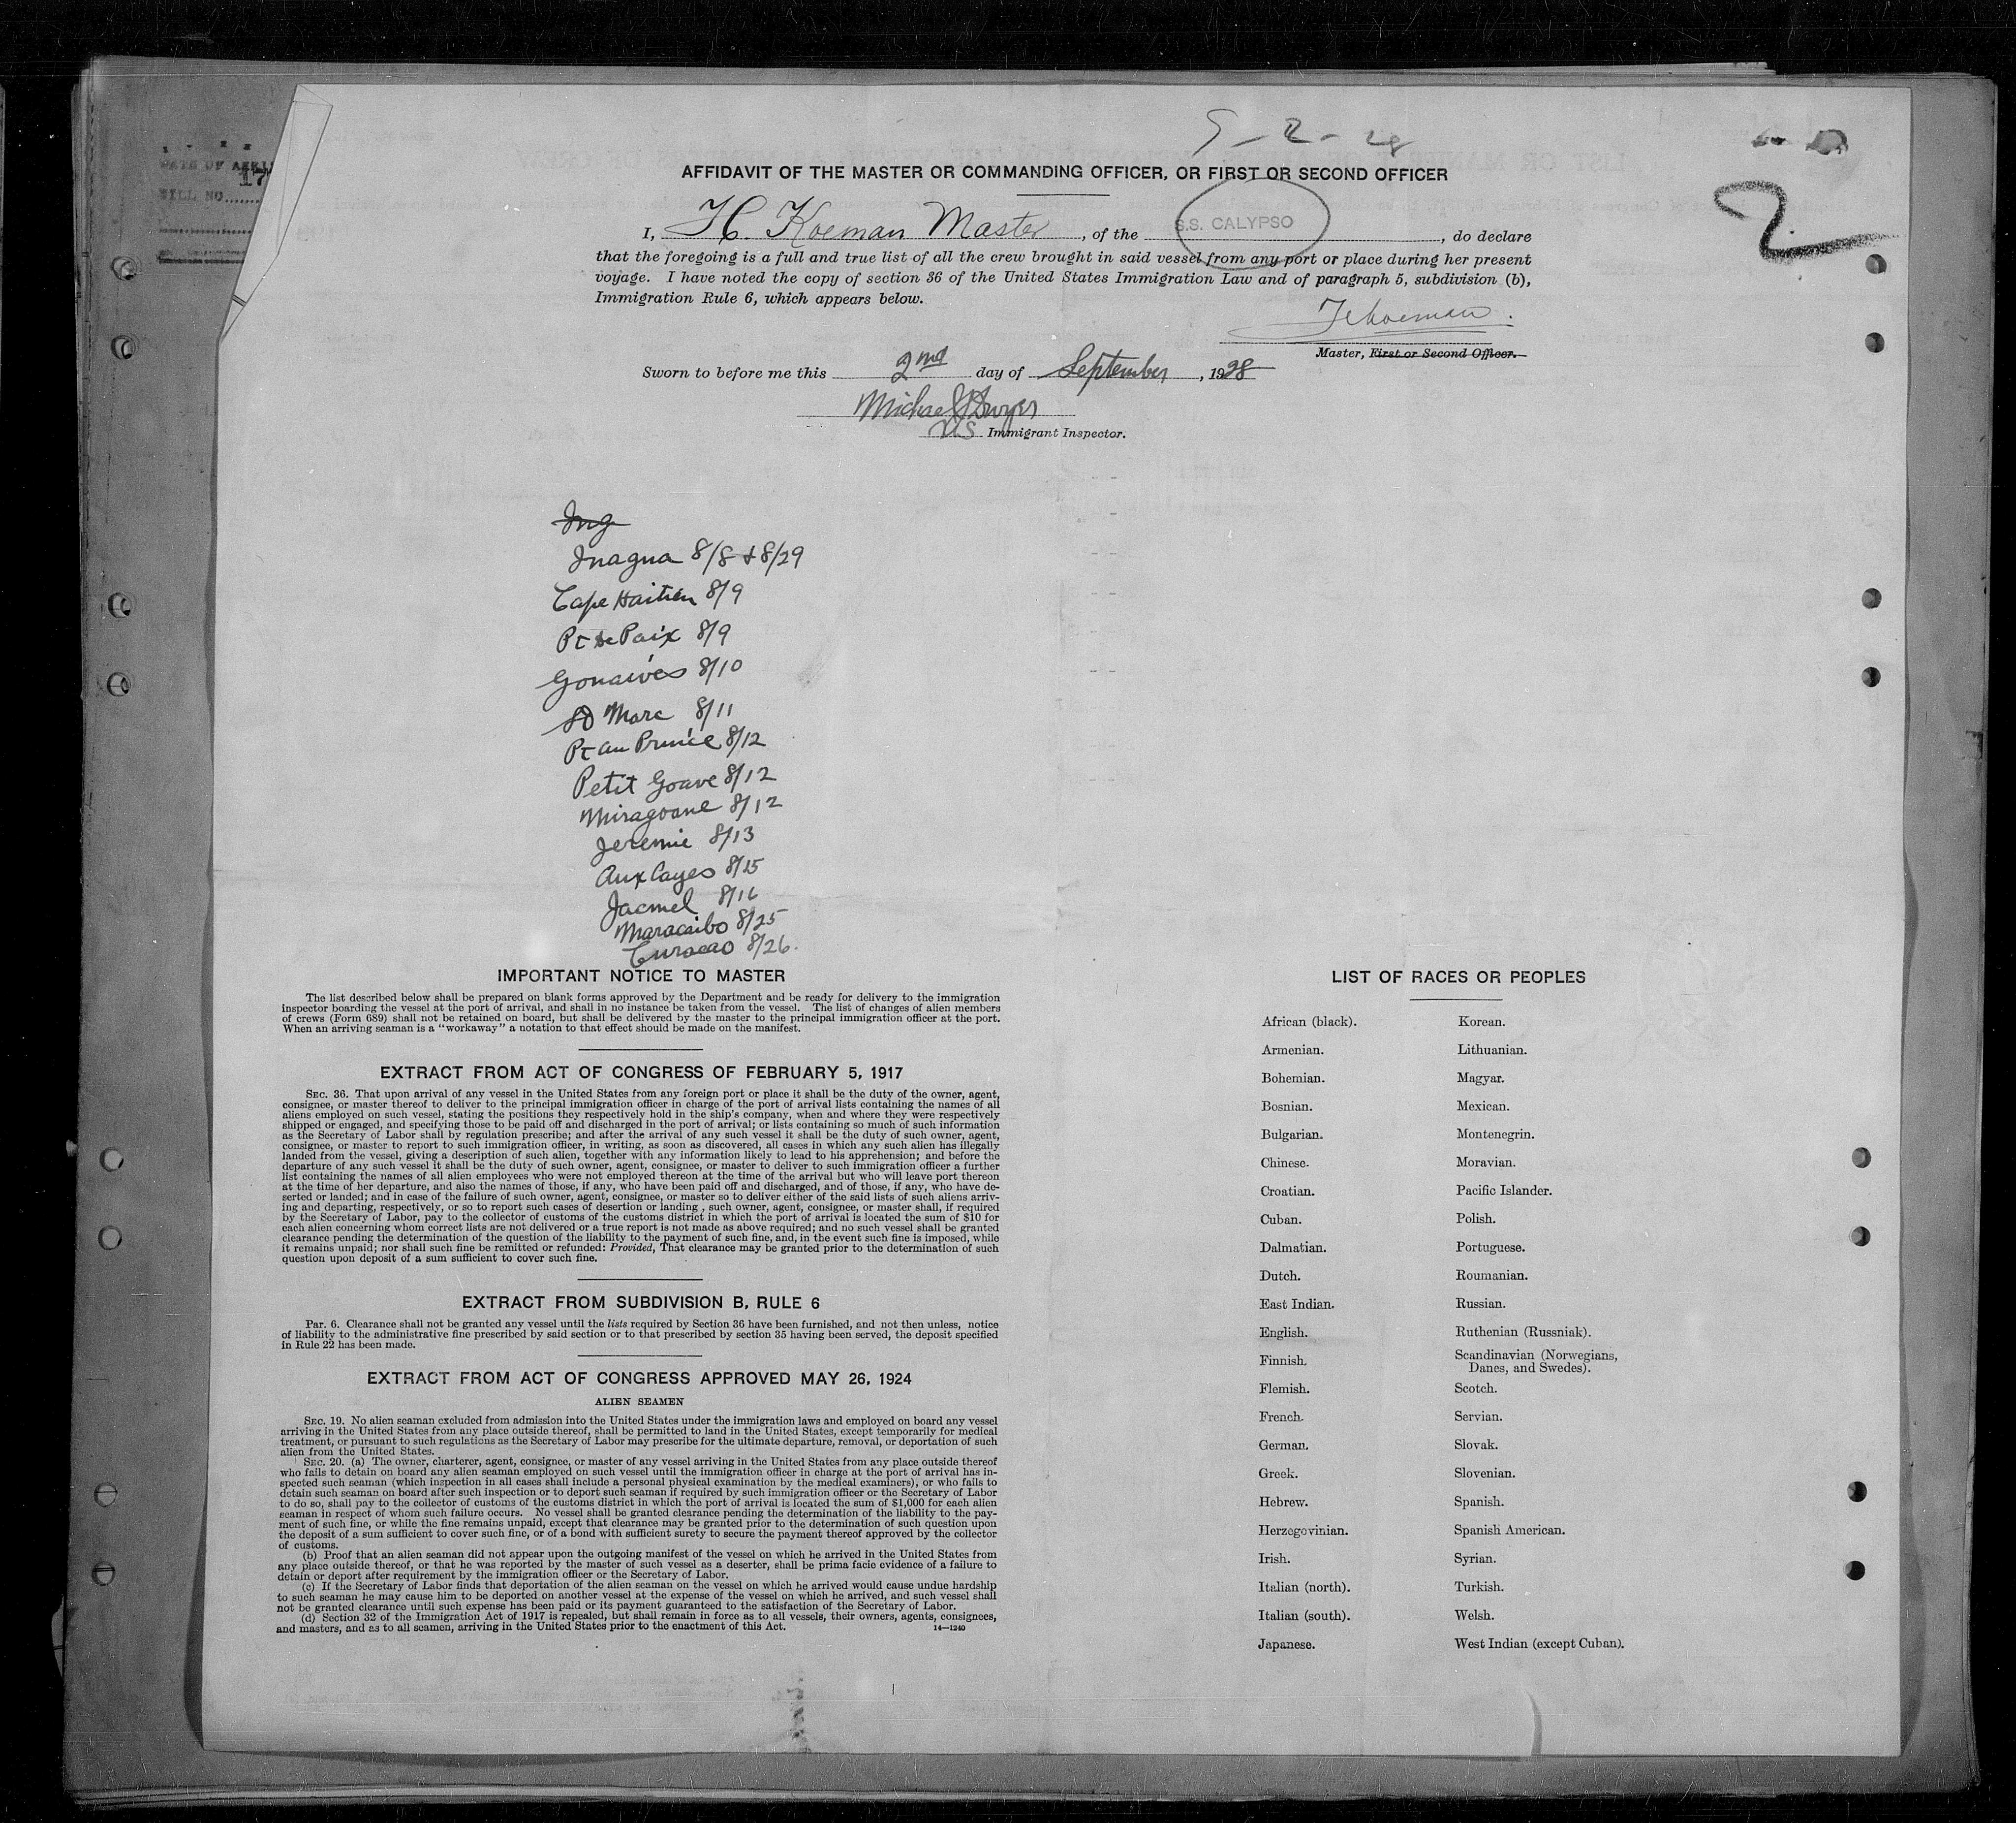 9-2-28
DATE OF
17
BILL NO
2
AFFIDAVIT OF THE MASTER OR COMMANDING OFFICER, OR FIRST OR SECOND OFFICER
I, H. Koeman Master, of the S.S. CALYPSO, do declare
that the foregoing is a full and true list of all the crew brought in said vessel from any port or place during her present
voyage. I have noted the copy of section 36 of the United States Immigration Law and of paragraph 5, subdivision (b),
Immigration Rule 6, which appears below.
H Koeman.
Master, First or Second Officer.
Sworn to before me this 2nd day of September, 1928
Michael J Dwyer
US Immigrant Inspector.
Ing
Inagua 8/8 & 8/29
Cape Haitien 8/9
Pt de Paix 8/9
Gonaives 8/10
St Marc 8/11
Pt au Prince 8/12
Petit Goave 8/12
Miragoane 8/12
Jeremie 8/13
Aux Cayes 8/15
Jacmel 8/16
Maracaibo 8/25
Curacao 8/26.
IMPORTANT NOTICE TO MASTER
The list described below shall be prepared on blank forms approved by the Department and be ready for delivery to the immigration
inspector boarding the vessel at the port of arrival, and shall in no instance be taken from the vessel. The list of changes of alien members
of crews (Form 689) shall not be retained on board, but shall be delivered by the master to the principal immigration officer at the port.
When an arriving seaman is a "workaway" a notation to that effect should be made on the manifest.
EXTRACT FROM ACT OF CONGRESS OF FEBRUARY 5, 1917
SEC. 36. That upon arrival of any vessel in the United States from any foreign port or place it shall be the duty of the owner, agent,
consignee, or master thereof to deliver to the principal immigration officer in charge of the port of arrival lists containing the names of all
aliens employed on such vessel, stating the positions they respectively hold in the ship's company, when and where they were respectively
shipped or engaged, and specifying those to be paid off and discharged in the port of arrival; or lists containing so much of such information
as the Secretary of Labor shall by regulation prescribe; and after the arrival of any such vessel it shall be the duty of such owner, agent,
consignee, or master to report to such immigration officer, in writing, as soon as discovered, all cases in which any such alien has illegally
landed from the vessel, giving a description of such alien, together with any information likely to lead to his apprehension; and before the
departure of any such vessel it shall be the duty of such owner, agent, consignee, or master to deliver to such immigration officer a further
list containing the names of all alien employees who were not employed thereon at the time of the arrival but who will leave port thereon
at the time of her departure, and also the names of those, if any, who have been paid off and discharged, and of those, if any, who have de-
serted or landed; and in case of the failure of such owner, agent, consignee, or master so to deliver either of the said lists of such aliens arriv-
ing and departing, respectively, or so to report such cases of desertion or landing , such owner, agent, consignee, or master shall, if required
by the Secretary of Labor, pay to the collector of customs of the customs district in which the port of arrival is located the sum of $10 for
each alien concerning whom correct lists are not delivered or a true report is not made as above required; and no such vessel shall be granted
clearance pending the determination of the question of the liability to the payment of such fine, and, in the event such fine is imposed, while
it remains unpaid; nor shall such fine be remitted or refunded: Provided, That clearance may be granted prior to the determination of such
question upon deposit of a sum sufficient to cover such fine.
EXTRACT FROM SUBDIVISION B, RULE 6
Par. 6. Clearance shall not be granted any vessel until the lists required by Section 36 have been furnished, and not then unless, notice
of liability to the administrative fine prescribed by said section or to that prescribed by section 35 having been served, the deposit specified
in Rule 22 has been made.
EXTRACT FROM ACT OF CONGRESS APPROVED MAY 26, 1924
ALIEN SEAMEN
SEC. 19. No alien seaman excluded from admission into the United States under the immigration laws and employed on board any vessel
arriving in the United States from any place outside thereof, shall be permitted to land in the United States, except temporarily for medical
treatment, or pursuant to such regulations as the Secretary of Labor may prescribe for the ultimate departure, removal, or deportation of such
alien from the United States.
SEC. 20. (a) The owner, charterer, agent, consignee, or master of any vessel arriving in the United States from any place outside thereof
who fails to detain on board any alien seaman employed on such vessel until the immigration officer in charge at the port of arrival has in-
spected such seaman (which inspection in all cases shall include a personal physical examination by the medical examiners), or who fails to
detain such seaman on board after such inspection or to deport such seaman if required by such immigration officer or the Secretary of Labor
to do so, shall pay to the collector of customs of the customs district in which the port of arrival is located the sum of $1,000 for each alien
seaman in respect of whom such failure occurs. No vessel shall be granted clearance pending the determination of the liability to the pay-
ment of such fine, or while the fine remains unpaid, except that clearance may be granted prior to the determination of such question upon
the deposit of a sum sufficient to cover such fine, or of a bond with sufficient surety to secure the payment thereof approved by the collector
of customs.
(b) Proof that an alien seaman did not appear upon the outgoing manifest of the vessel on which he arrived in the United States from
any place outside thereof, or that he was reported by the master of such vessel as a deserter, shall be prima facie evidence of a failure to
detain or deport after requirement by the immigration officer or the Secretary of Labor.
(c) If the Secretary of Labor finds that deportation of the alien seaman on the vessel on which he arrived would cause undue hardship
to such seaman he may cause him to be deported on another vessel at the expense of the vessel on which he arrived, and such vessel shall
not be granted clearance until such expense has been paid or its payment guaranteed to the satisfaction of the Secretary of Labor.
(d) Section 32 of the Immigration Act of 1917 is repealed, but shall remain in force as to all vessels, their owners, agents, consignees,
and masters, and as to all seamen, arriving in the United States prior to the enactment of this Act.
14—1240
LIST OF RACES OR PEOPLES
African (black).
Armenian.
Bohemian.
Bosnian.
Bulgarian.
Chinese.
Croatian.
Cuban.
Dalmatian.
Dutch.
East Indian.
English.
Finnish.
Flemish.
French.
German.
Greek.
Hebrew.
Herzegovinian.
Irish.
Italian (north).
Italian (south).
Japanese.
Korean.
Lithuanian.
Magyar.
Mexican.
Montenegrin.
Moravian.
Pacific Islander.
Polish.
Portuguese.
Roumanian.
Russian.
Ruthenian (Russniak).
Scandinavian (Norwegians,
Danes, and Swedes).
Scotch.
Servian.
Slovak.
Slovenian.
Spanish.
Spanish American.
Syrian.
Turkish.
Welsh.
West Indian (except Cuban).